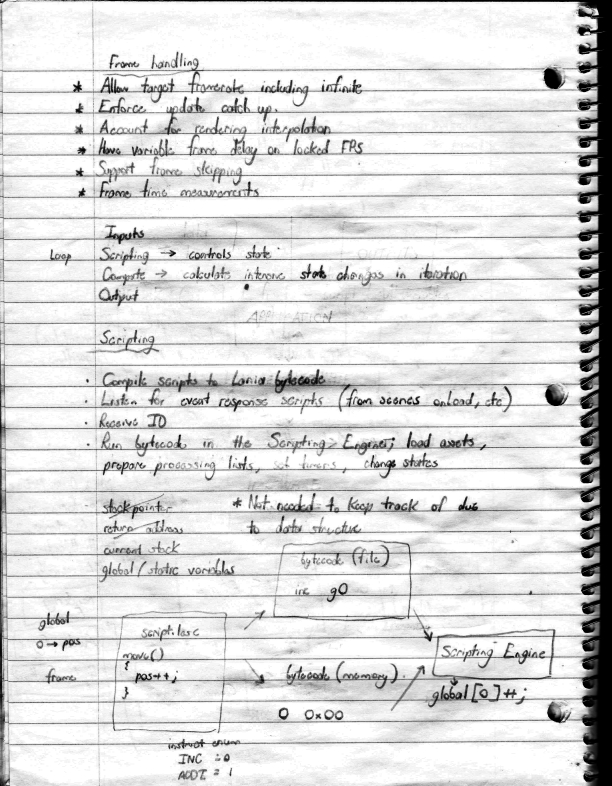 Frame handling
* Allow target framerate including infinite
* Enforce update catch up.
* Account for rendering interpolation
* Have variable frame delay on locked FPS
* Support frame skipping
* Frame time measurements
Inputs
Loop Scripting → controls state
Compute → calculate intensive state changes in iteration
Output
APPLICATION
Scripting
· Compile scripts to bytecode
· Listen for event response scripts (from scenes onload, etc)
· Receive IO
· Run bytecode in the Scripting Engine; load assets,
prepare processing lists, set timers, change states
stack pointer * Not needed to keep track of due
return address to data structure
current stack
global/static variables
bytecode (file)
inc g0
global
0 → pos
frame
script.lasc
move()
{
pos++;
}
bytecode (memory)
0 0x00
Scripting Engine
global[0]++;
instruct enum
INC = 0
ADDI = 1